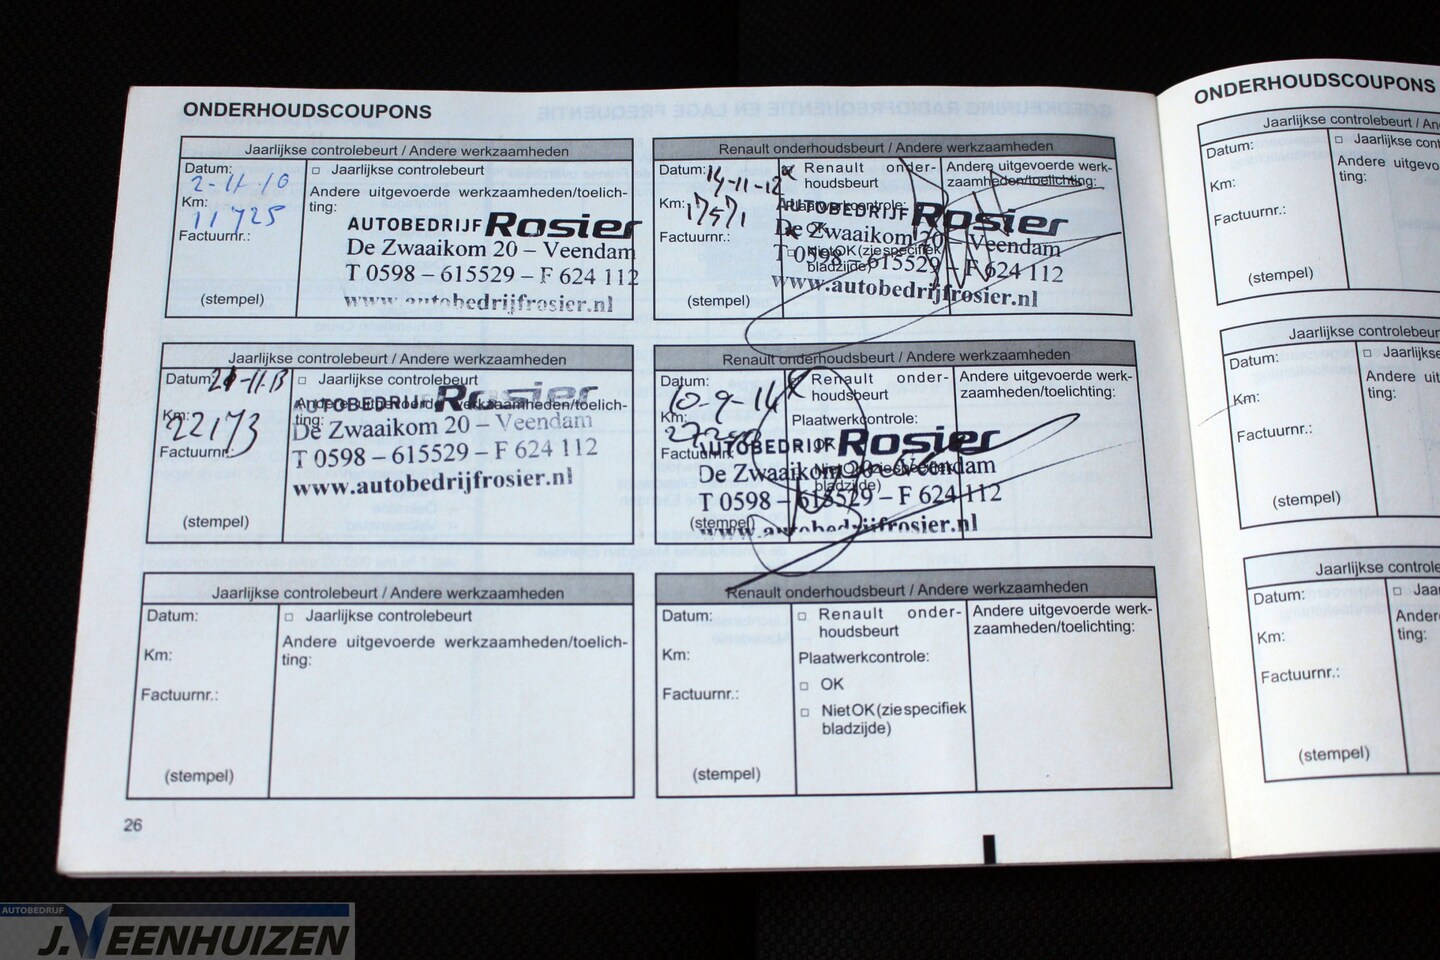 ONDERHOUDSCOUPONS
Jaarlijkse controlebeurt / Andere werkzaamheden
Datum:
2-11-10
Km:
11725
Factuurnr.:
(stempel)
□ Jaarlijkse controlebeurt
Andere uitgevoerde werkzaamheden/toelich-
ting:
AUTOBEDRIJF Rosier
De Zwaaikom 20 – Veendam
T 0598 – 615529 – F 624 112
www.autobedrijfrosier.nl
Renault onderhoudsbeurt / Andere werkzaamheden
Datum:
14-11-12
Km:
17571
Factuurnr.:
(stempel)
Renault onder-
houdsbeurt
Plaatwerkcontrole:
OK
Niet OK (zie specifiek
bladzijde)
Andere uitgevoerde werk-
zaamheden/toelichting:
AUTOBEDRIJF Rosier
De Zwaaikom 20 – Veendam
T 0598 – 615529 – F 624 112
www.autobedrijfrosier.nl
Jaarlijkse controlebeurt / Andere werkzaamheden
Datum:
21-11-13
Km:
22173
Factuurnr.:
(stempel)
□ Jaarlijkse controlebeurt
Andere uitgevoerde werkzaamheden/toelich-
ting:
AUTOBEDRIJF Rosier
De Zwaaikom 20 – Veendam
T 0598 – 615529 – F 624 112
www.autobedrijfrosier.nl
Renault onderhoudsbeurt / Andere werkzaamheden
Datum:
10-9-14
Km:
Factuurnr.:
(stempel)
Renault onder-
houdsbeurt
Plaatwerkcontrole:
OK
Niet OK (zie specifiek
bladzijde)
Andere uitgevoerde werk-
zaamheden/toelichting:
AUTOBEDRIJF Rosier
De Zwaaikom 20 – Veendam
T 0598 – 615529 – F 624 112
www.autobedrijfrosier.nl
Jaarlijkse controlebeurt / Andere werkzaamheden
Datum:
Km:
Factuurnr.:
(stempel)
□ Jaarlijkse controlebeurt
Andere uitgevoerde werkzaamheden/toelich-
ting:
Renault onderhoudsbeurt / Andere werkzaamheden
Datum:
Km:
Factuurnr.:
(stempel)
□ Renault onder-
houdsbeurt
Plaatwerkcontrole:
□ OK
□ Niet OK (zie specifiek
bladzijde)
Andere uitgevoerde werk-
zaamheden/toelichting:
26
ONDERHOUDSCOUPONS
Jaarlijkse controlebeurt / An
Datum:
Km:
Factuurnr.:
(stempel)
□ Jaarlijkse cont
Andere uitgevo
ting:
Jaarlijkse controlebeur
Datum:
Km:
Factuurnr.:
(stempel)
□ Jaarlijkse
Andere uit
ting:
Jaarlijkse controle
Datum:
Km:
Factuurnr.:
(stempel)
□ Jaar
Andere
ting:
AUTOBEDRIJF
J. VEENHUIZEN